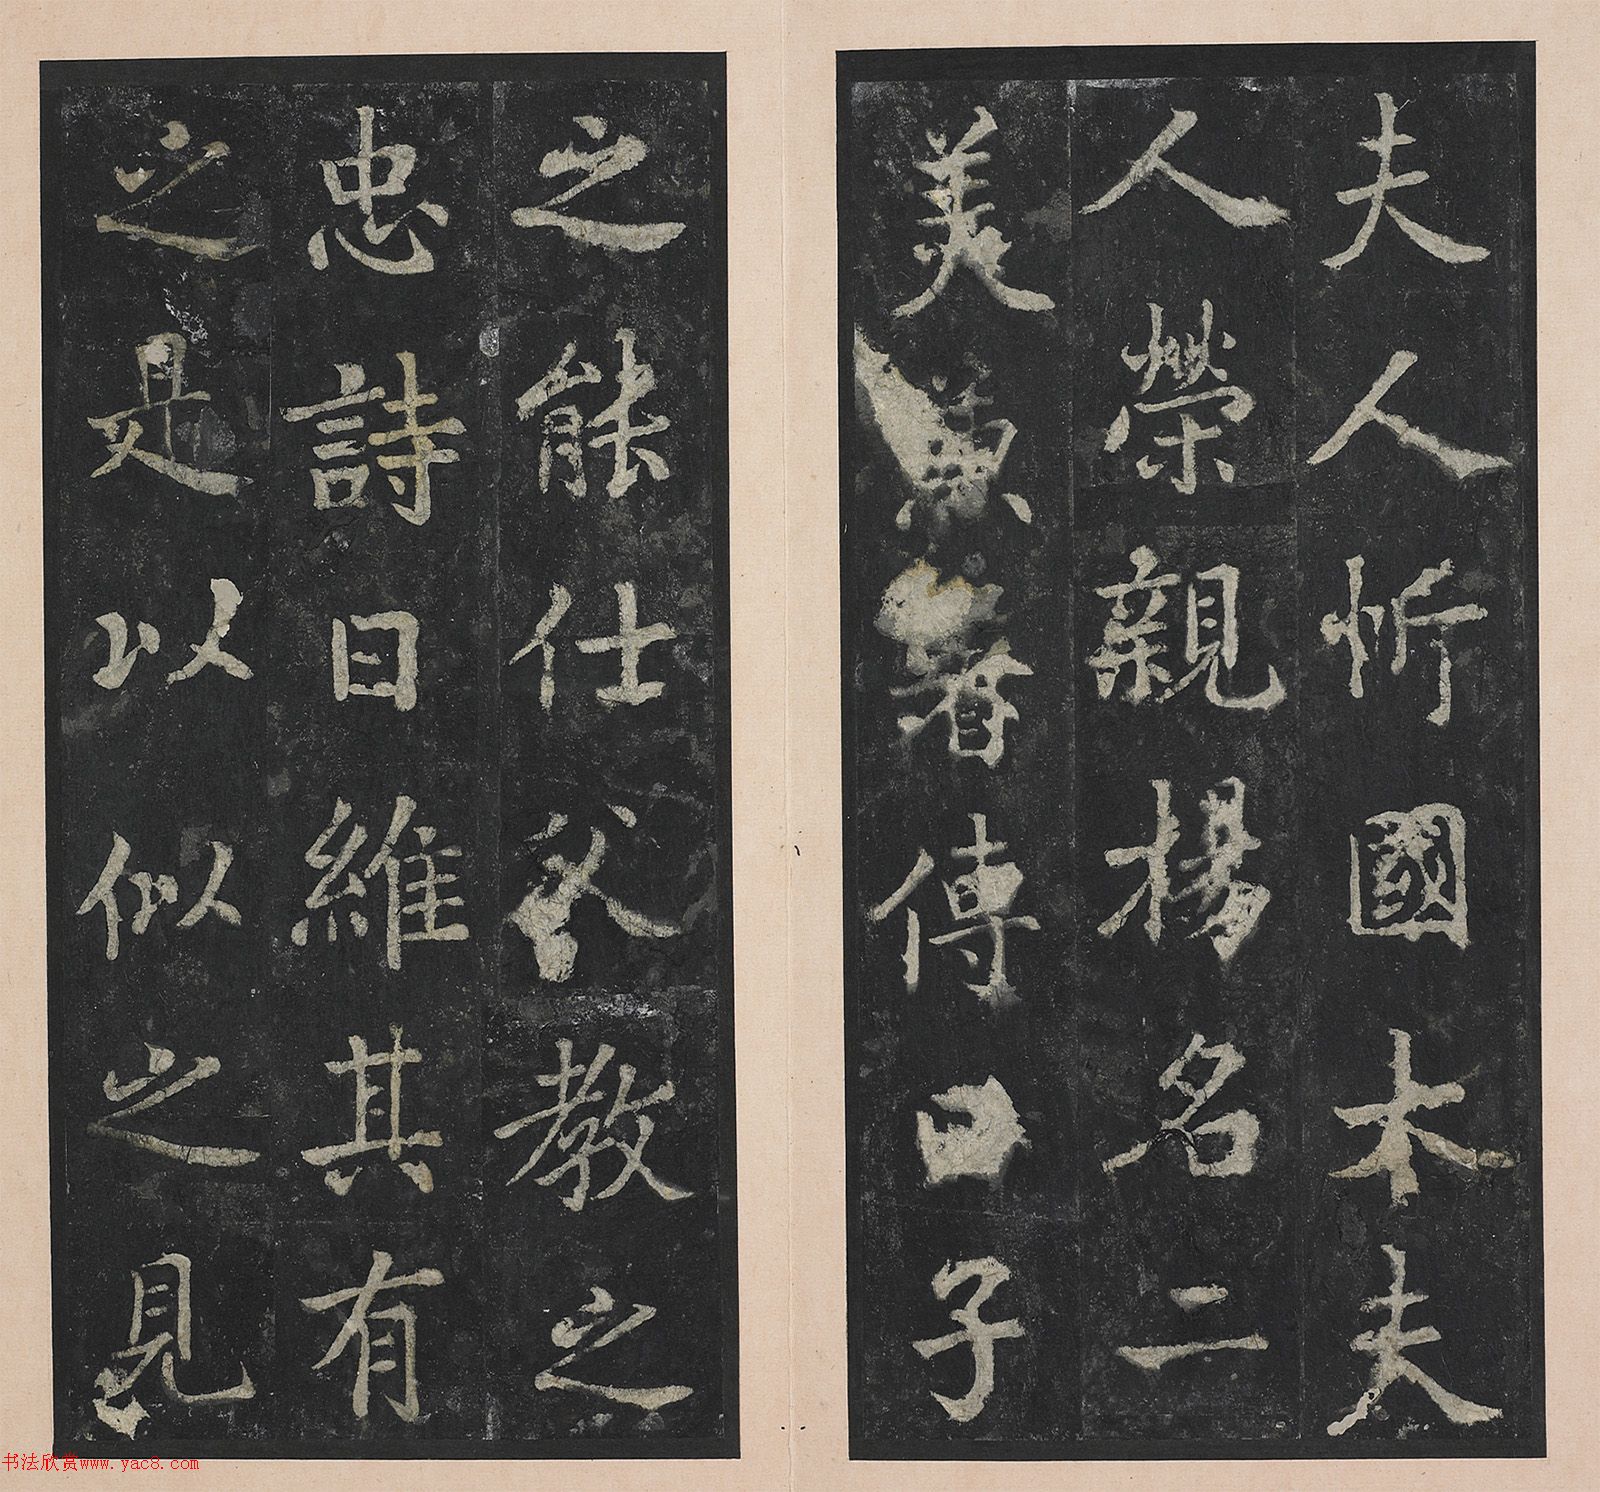 夫人忻國太夫
人榮親揚名二
美兼著傳曰子
之能仕父教之
忠詩曰維其有
之是以似之見
书法欣赏www.yac8.com